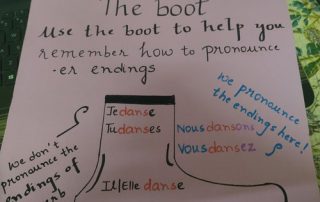 The boot
Use the boot to help you
remember how to pronounce
-er endings
Je danse
Tu danses
Il|Elle danse
Nous dansons
Vous dansez
we pronounce
the endings here!
we don't
pronounce the
endings of